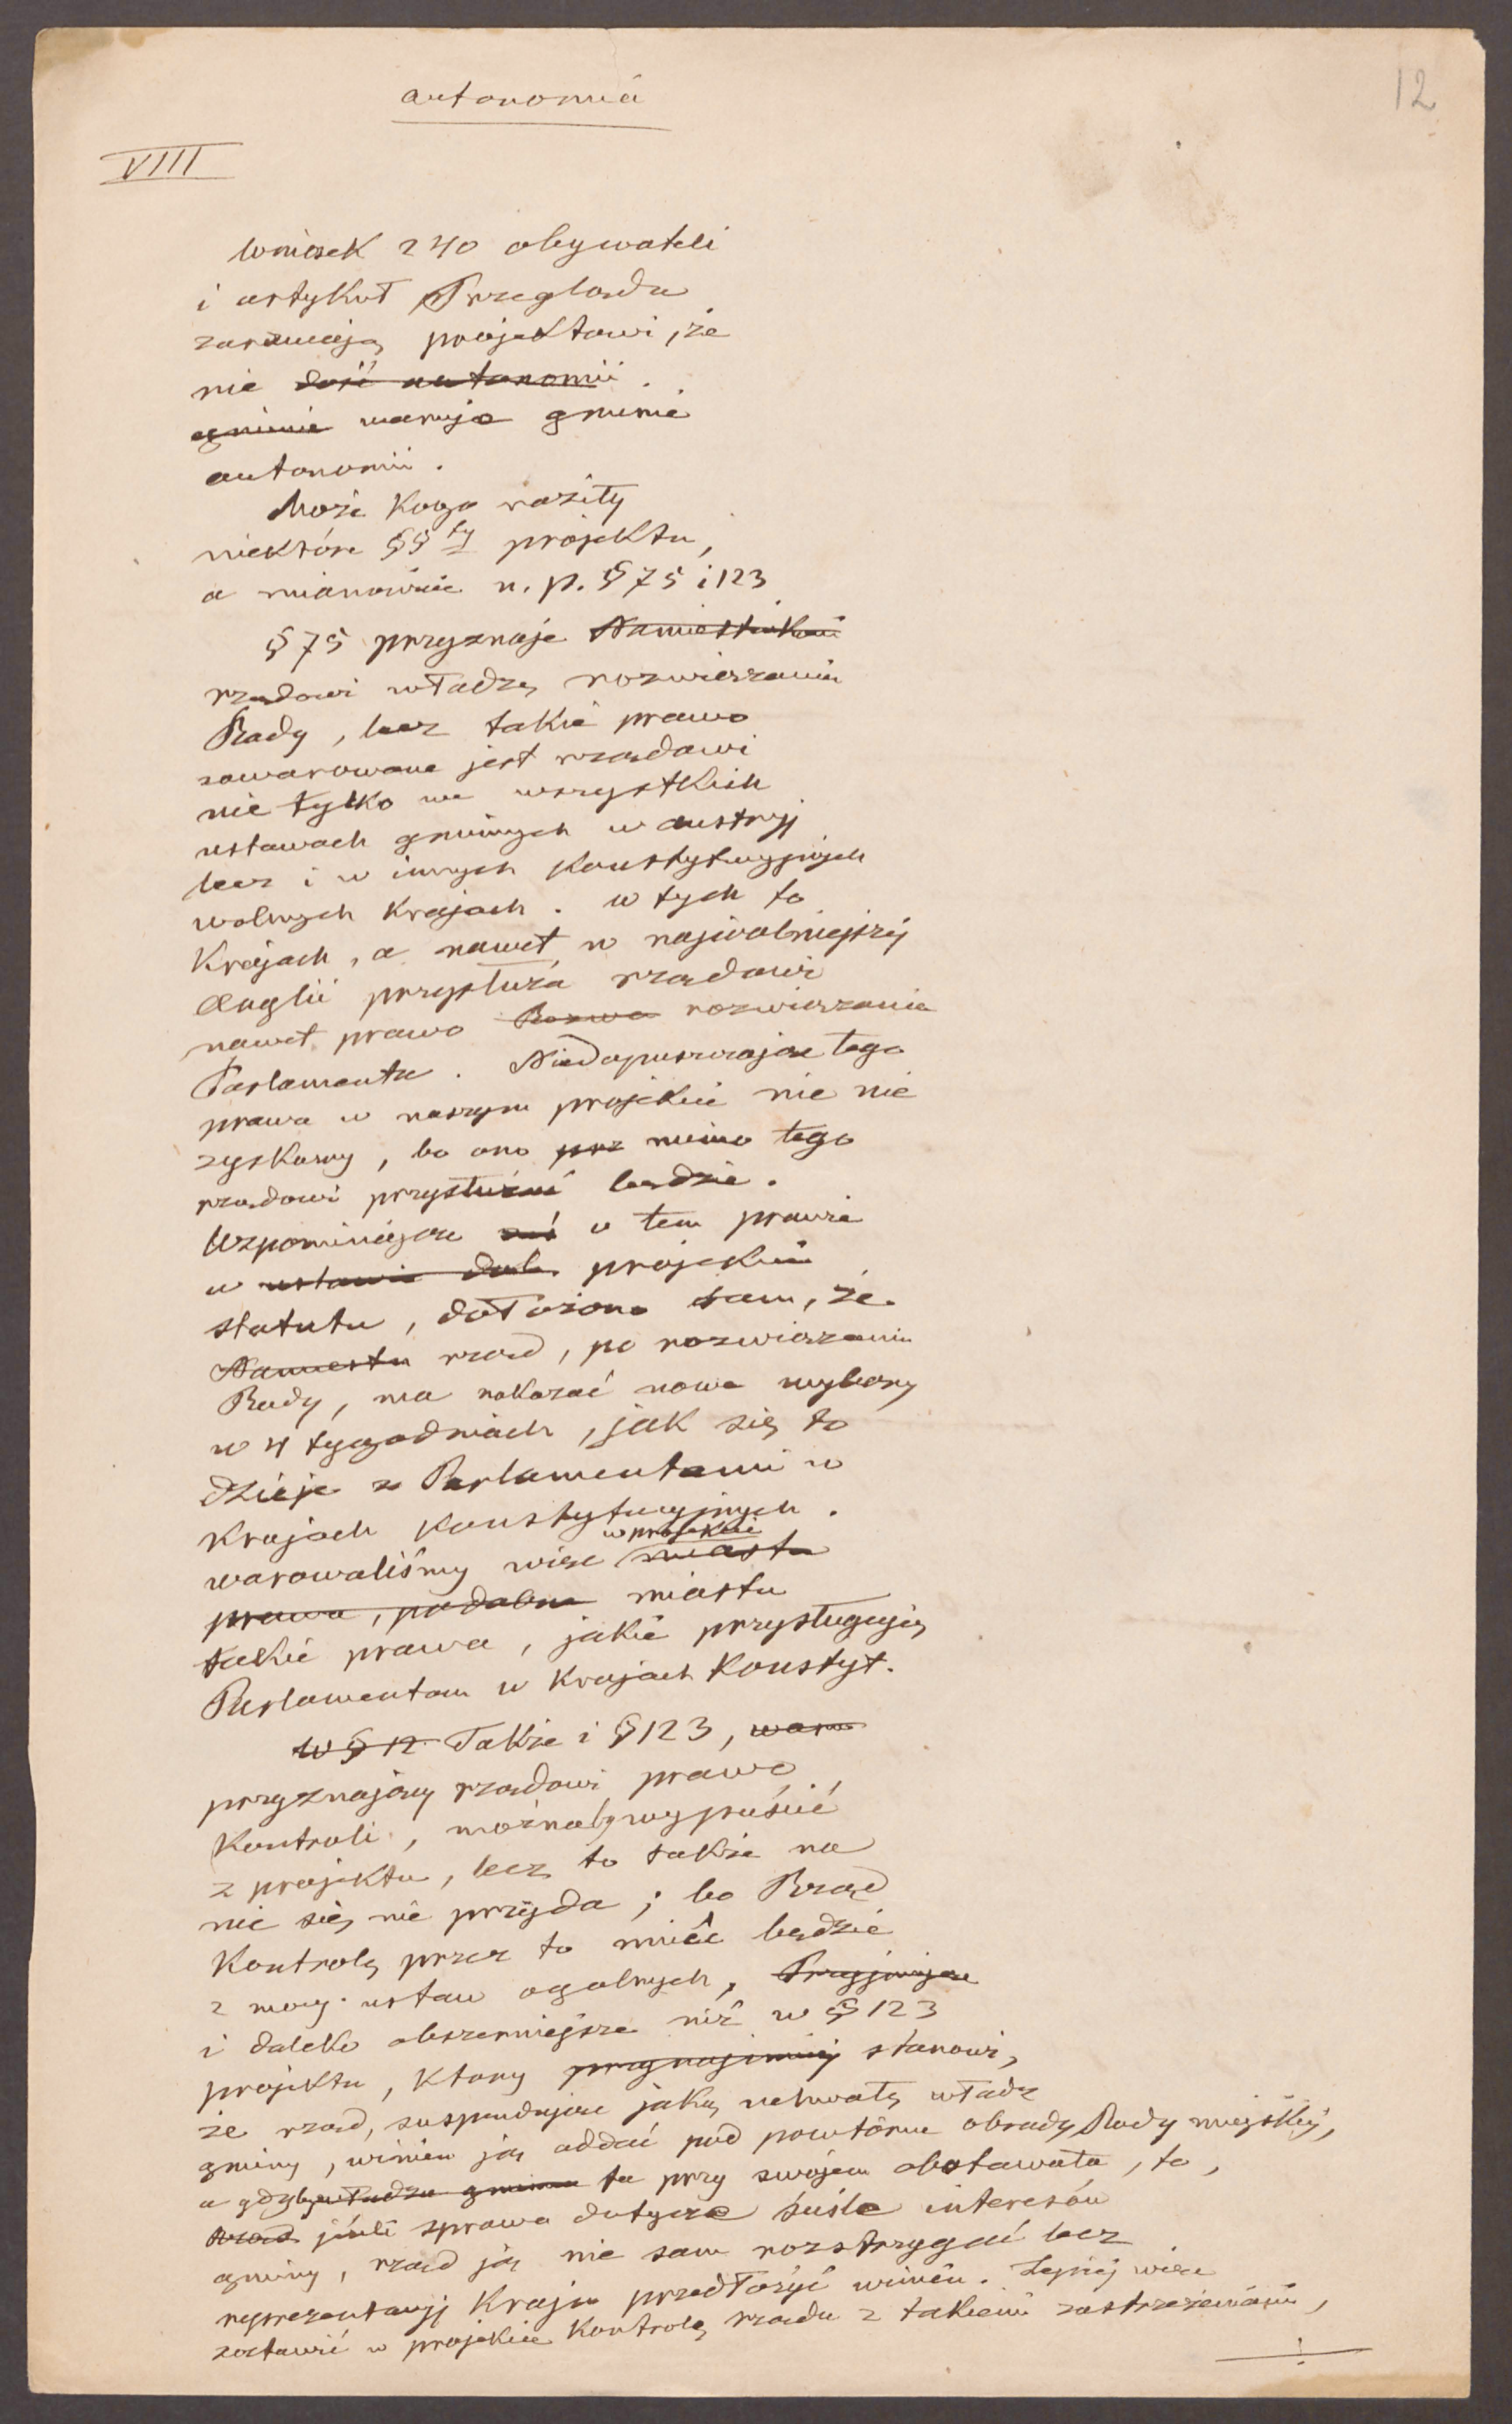 autonomia
12
VIII
Wniosek 240 obywateli
i artykuł Przeglądu
zarzucają projektowi, że
nie dość autonomii
gminie waruje gminie
autonomii.
Może kogo raziły
niektóre §§ fy projektu,
a mianowicie n. p. § 75 i 123
§ 75 przyznaje Namiestnikowi
rządowi władzę rozwiązania
Rady, lecz takie prawo
zawarowane jest rządowi
nie tylko we wszystkich
ustawach gminnych w Austryj
lecz i w innych konstytucyjnych
wolnych krajach. W tych to
krajach, a nawet w najwolniejszej
Anglii przysłuża rządowi
nawet prawo Rozwa rozwiązania
Parlamentu. Niedopuszczając tego
prawa w naszym projekcie nic nie
zyskamy, bo ono prz mimo tego
rządowi przysłużać będzie.
Wspominając zaś o tem prawie
w ustawie dod. projekcie
statutu, dołożono tam, że
Namiestn rząd, po rozwiązaniu
Rady, ma nakazać nowe wybory
w 4 tygodniach, jak się to
dzieje z Parlamentami w
krajach konstytucyjnych.
w projekcie
warowaliśmy więc miastu
prawa, podobne miastu
takie prawa, jakie przysługują
Parlamentom w krajach konstyt.
W § 12 Także i § 123, waru
przyznający rządowi prawo
kontroli, możnaby wypuścić
z projektu, lecz to także na
nic się nie przyda; bo Rząd
kontrolę przez to mieć będzie
z mocy ustaw ogolnych, Przyjmując
i daleko obszerniejsze niż w § 123
projektu, ktory przynajmniej stanowi,
że rząd, suspendując jaką uchwałę władz
gminy, winien ją oddać pod powtórne obrady Rady miejskiej,
a gdyby władza gminna ta przy swojem obstawała, to,
rząd jeśli sprawa dotycze ściśle interesów
gminy, rząd ją nie sam rozstrzygać lecz
reprezentacyj kraju przedłożyć winien. Lepiej więc
zostawić w projekcie kontrolę rządu z takiemi zastrzeżeniami,